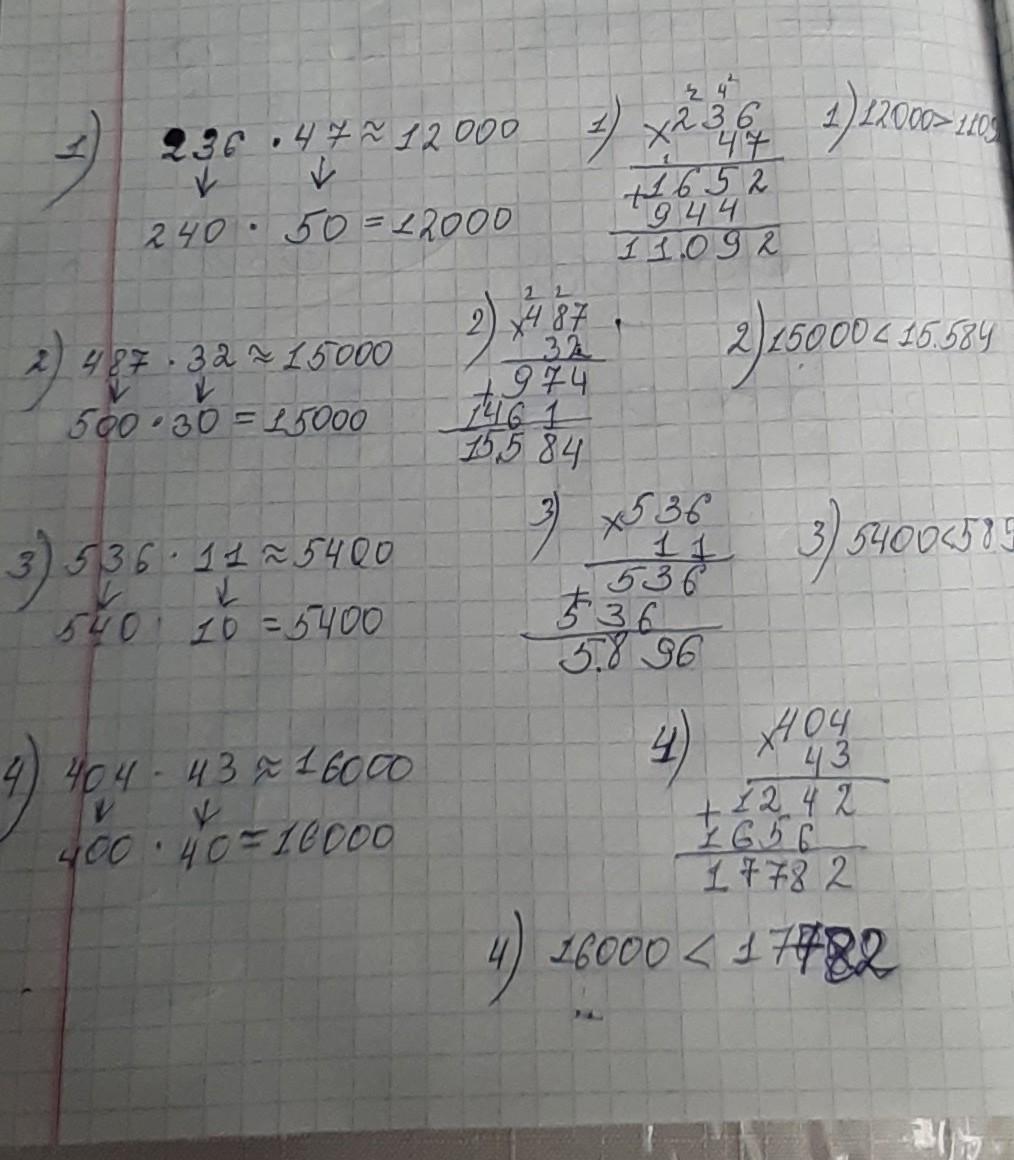 1) 236 · 47 ≈ 12000
240 · 50 = 12000
1) 2 4 2
× 236
47
1
+ 1652
944
11.092
1) 12000 >
2) 487 · 32 ≈ 15000
500 · 30 = 15000
2) 2 2
× 487
32
+ 974
1461
15.584
2) 15000 < 15.584
3) 536 · 11 ≈ 5400
540 · 10 = 5400
3) × 536
11
+ 536
536
5.896
3) 5400 < 589
4) 404 · 43 ≈ 16000
400 · 40 = 16000
4) × 404
43
+ 1242
1656
17782
4) 16000 < 17782